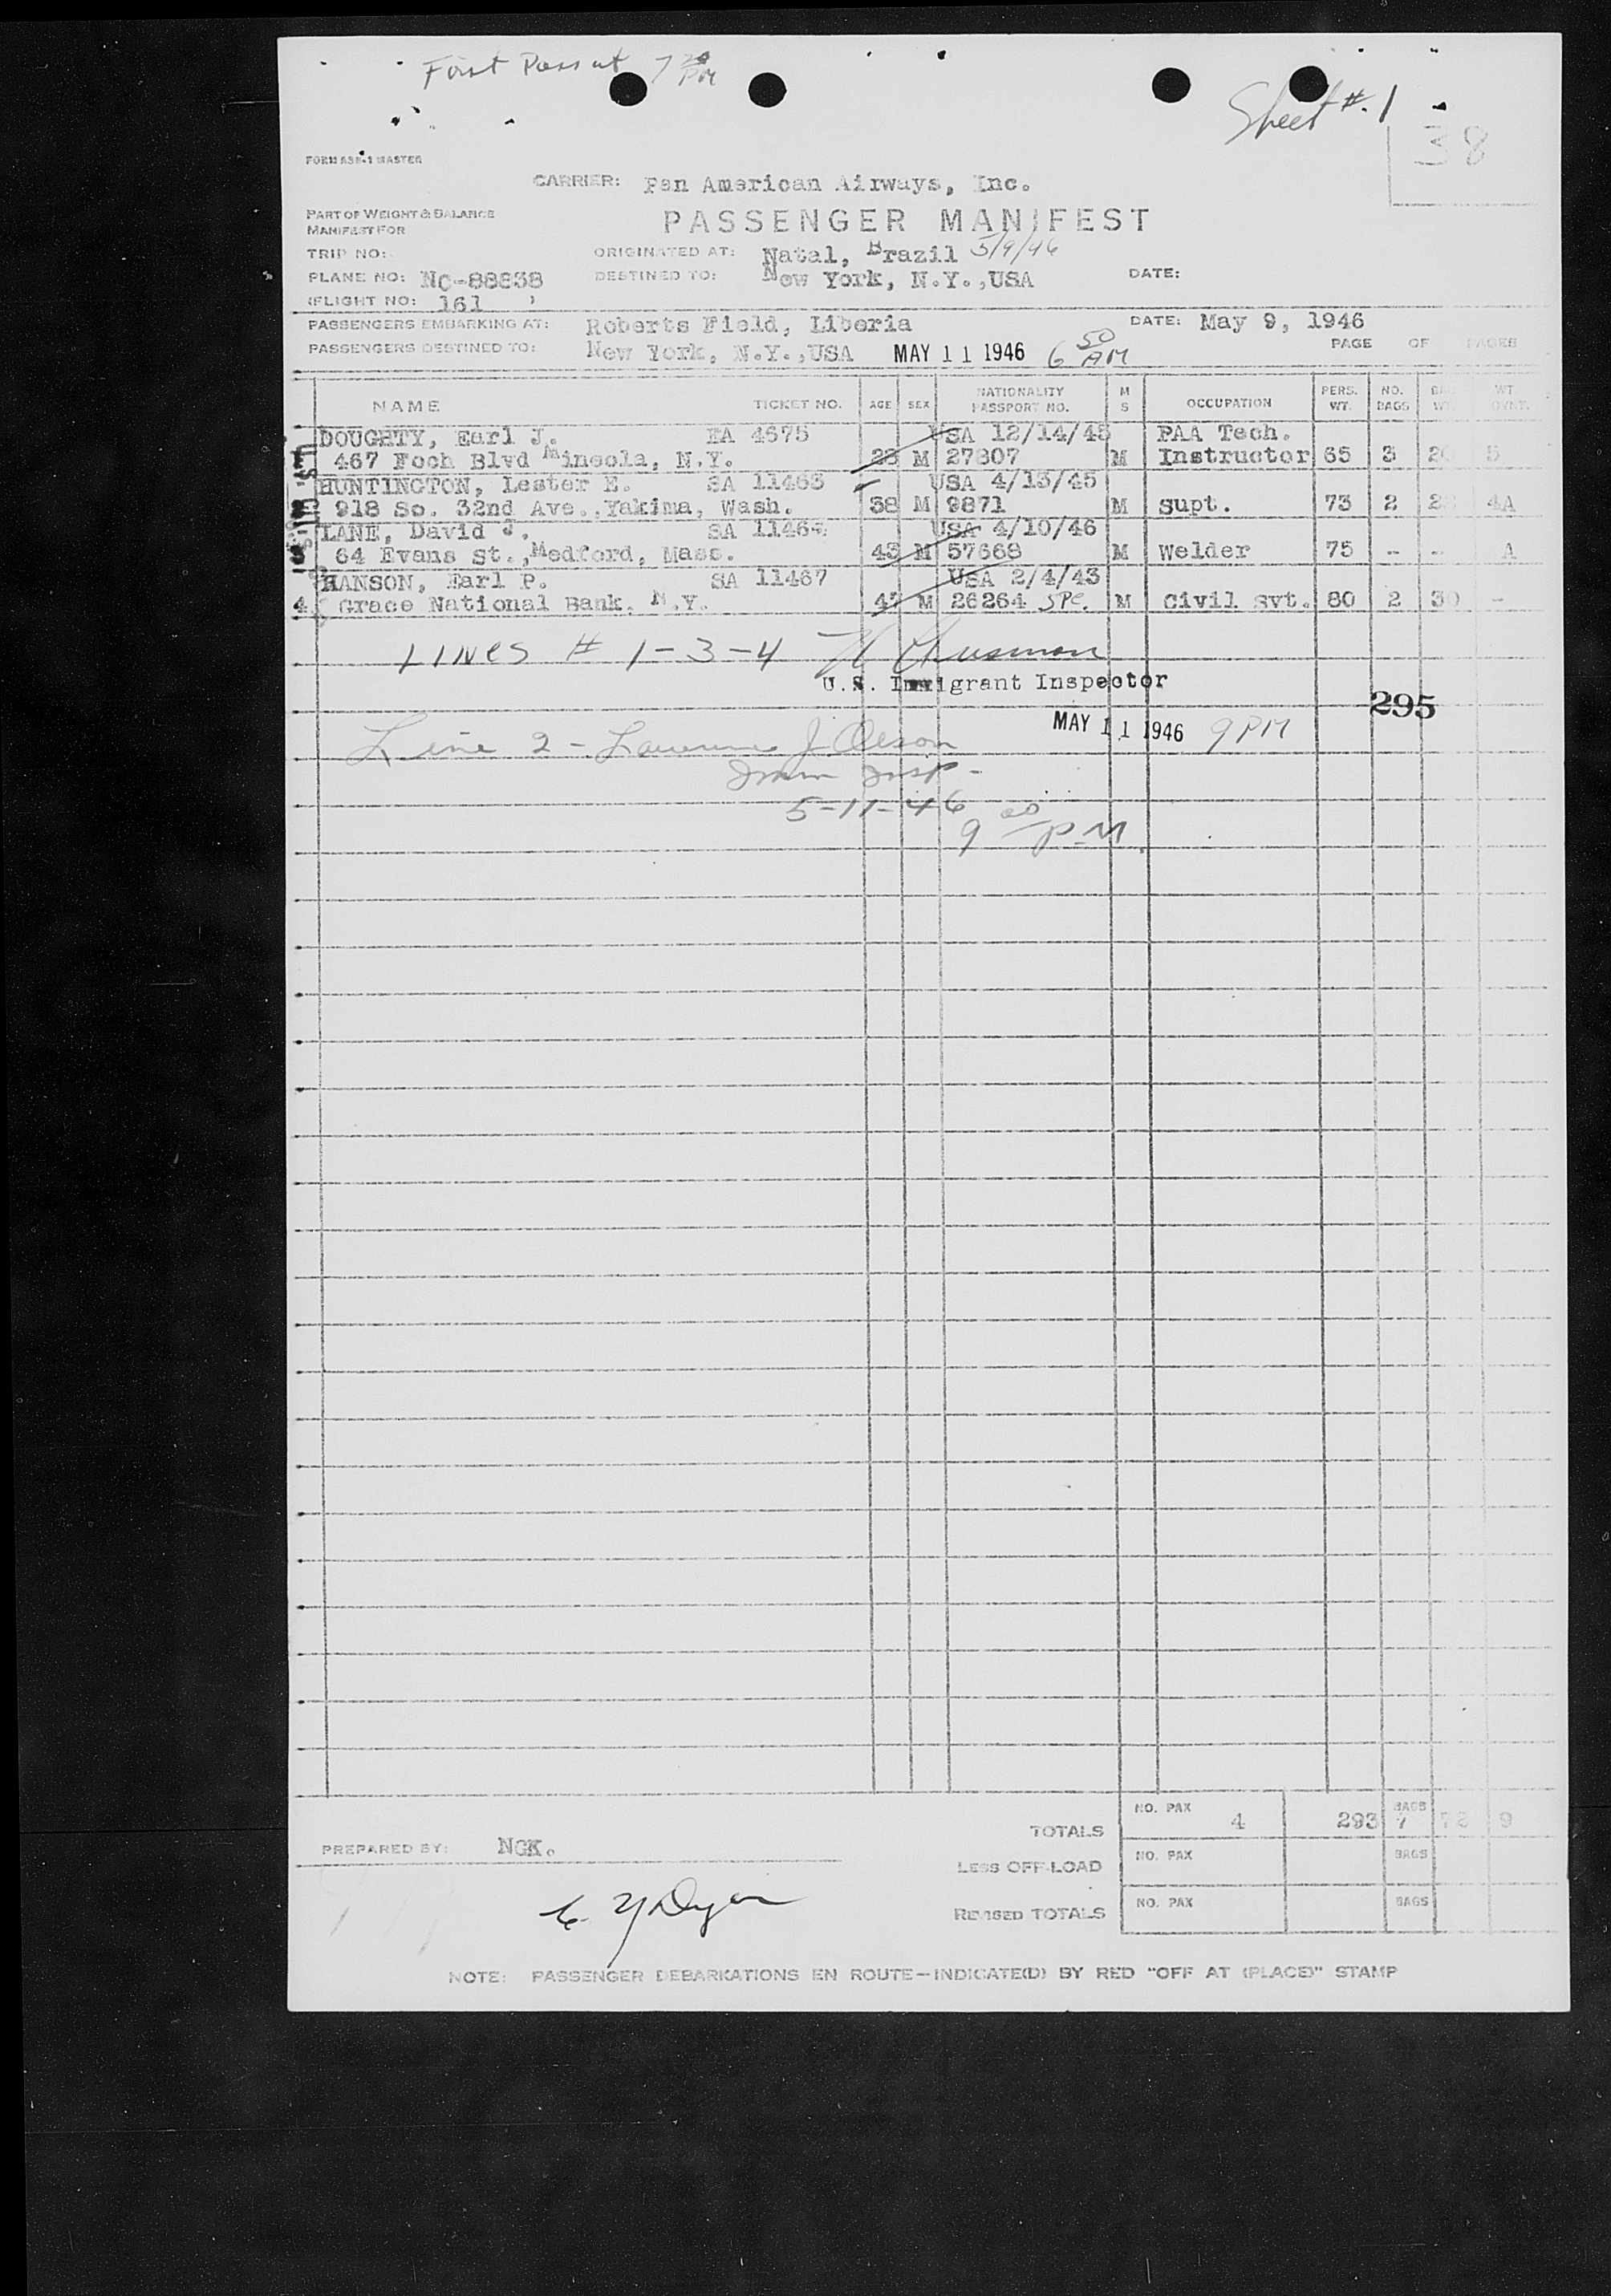 First Pass at 7 30 PM
Sheet #. 1
38
FORM ASB-1 MASTER
CARRIER: Pan American Airways, Inc.
PART OF WEIGHT & BALANCE
MANIFEST FOR
PASSENGER MANIFEST
TRIP NO:
ORIGINATED AT: Natal, Brazil 5/9/46
PLANE NO: NC-88838
DESTINED TO: New York, N.Y.,USA
DATE:
(FLIGHT NO: 161 )
PASSENGERS EMBARKING AT: Roberts Field, Liberia DATE: May 9, 1946
PASSENGERS DESTINED TO: New York, N.Y.,USA MAY 11 1946 6 50 AM PAGE OF PAGES
NAME TICKET NO. AGE SEX NATIONALITY PASSPORT NO. M S OCCUPATION PERS. WT. NO. BAGS WT.
DOUGHTY, Earl J. EA 4675 USA 12/14/45 PAA Tech.
467 Foch Blvd Mineola, N.Y. 28 M 27807 M Instructor 65 3 5
HUNTINGTON, Lester E. SA 11463 USA 4/13/45
918 So. 32nd Ave.,Yakima, Wash. 38 M 9871 M Supt. 73 2 4A
LANE, David J. SA 11464 USA 4/10/46
64 Evans St.,Medford, Mass. 43 M 57668 M Welder 75 - - A
HANSON, Earl P. SA 11467 USA 2/4/43
4 Grace National Bank, N.Y. 47 M 26264 SPC. M Civil Svt. 80 2 30 -
LINES # 1-3-4
U.S. Immigrant Inspector
295
MAY 11 1946 9 PM
Line 2 - Lawrence J Olson
Imm Insp-
5-11-46
9 00 PM
TOTALS NO. PAX 4 293 BAGS 7 72 9
PREPARED BY: NGK.
LESS OFF-LOAD NO. PAX BAGS
REVISED TOTALS NO. PAX BAGS
NOTE: PASSENGER DEBARKATIONS EN ROUTE—INDICATE(D) BY RED "OFF AT (PLACE)" STAMP